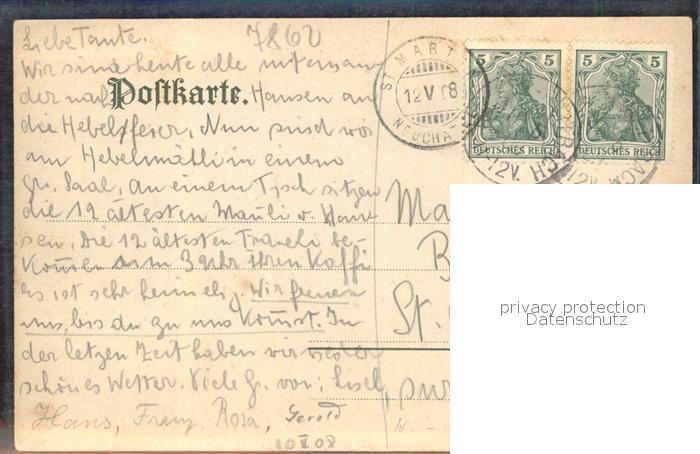 Liebe Tante. 7860
Wir sind heute alle miteinan
der nach Hausen an
die Hebelfeier, Nun sind wir
am Hebelmähli in einem
gr. Saal, an einem Tisch sitzen
die 12 ältesten Manli v. Hau-
sen. Die 12 ältesten Fraueli be-
kommen um 3 Uhr ihren Kaffi
es ist sehr heimelig. Wir freuen
uns, bis du zu uns kommst. In
der letzen Zeit haben wir
schönes Wetter. Viele Gr. von: Lisel,
Hans, Franz, Rosa, Gerold
10 V 08
Postkarte.
ST. MART
12 V 08
NEUCHA
5 5
DEUTSCHES REICH
5 5
DEUTSCHES REICH
12V.
Ma
B
St.
privacy protection
Datenschutz